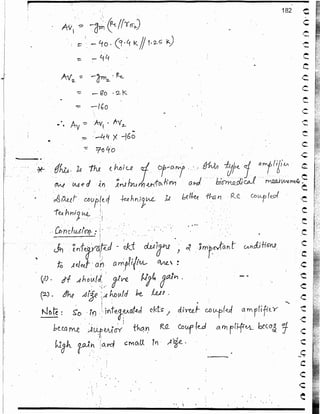 182
Av₁ = -gm (Rc // rπ₂)
= -40 · (9.4 K // 1.25 K)
= -44
Av₂ = -gm₂ · Rc
= -80 · 2K
= -160
∴ Av = Av₁ · Av₂
= -44 × -160
= 7040
* This is the choice of op-amp. This type of amplifiers
are used in instrumentation and biomedical
Direct coupled technique is better than R.C coupled
technique.
Conclusion :
In integrated - ckt designs, 2 important conditions
to select an amplifier
(1). It should give high gain.
(2). The size should be less.
Note : So in integrated ckts, direct coupled amplifier
became superior than R.C coupled amplifier becoz of
high gain and small in size.